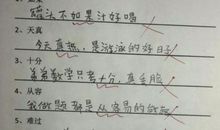 罐头不如果汁好喝
2、天真
今天真热，是游泳的好日子
3、十分
弟弟数学只考十分，真丢脸
4、从容
我做题都是从容易的做起
5、难过